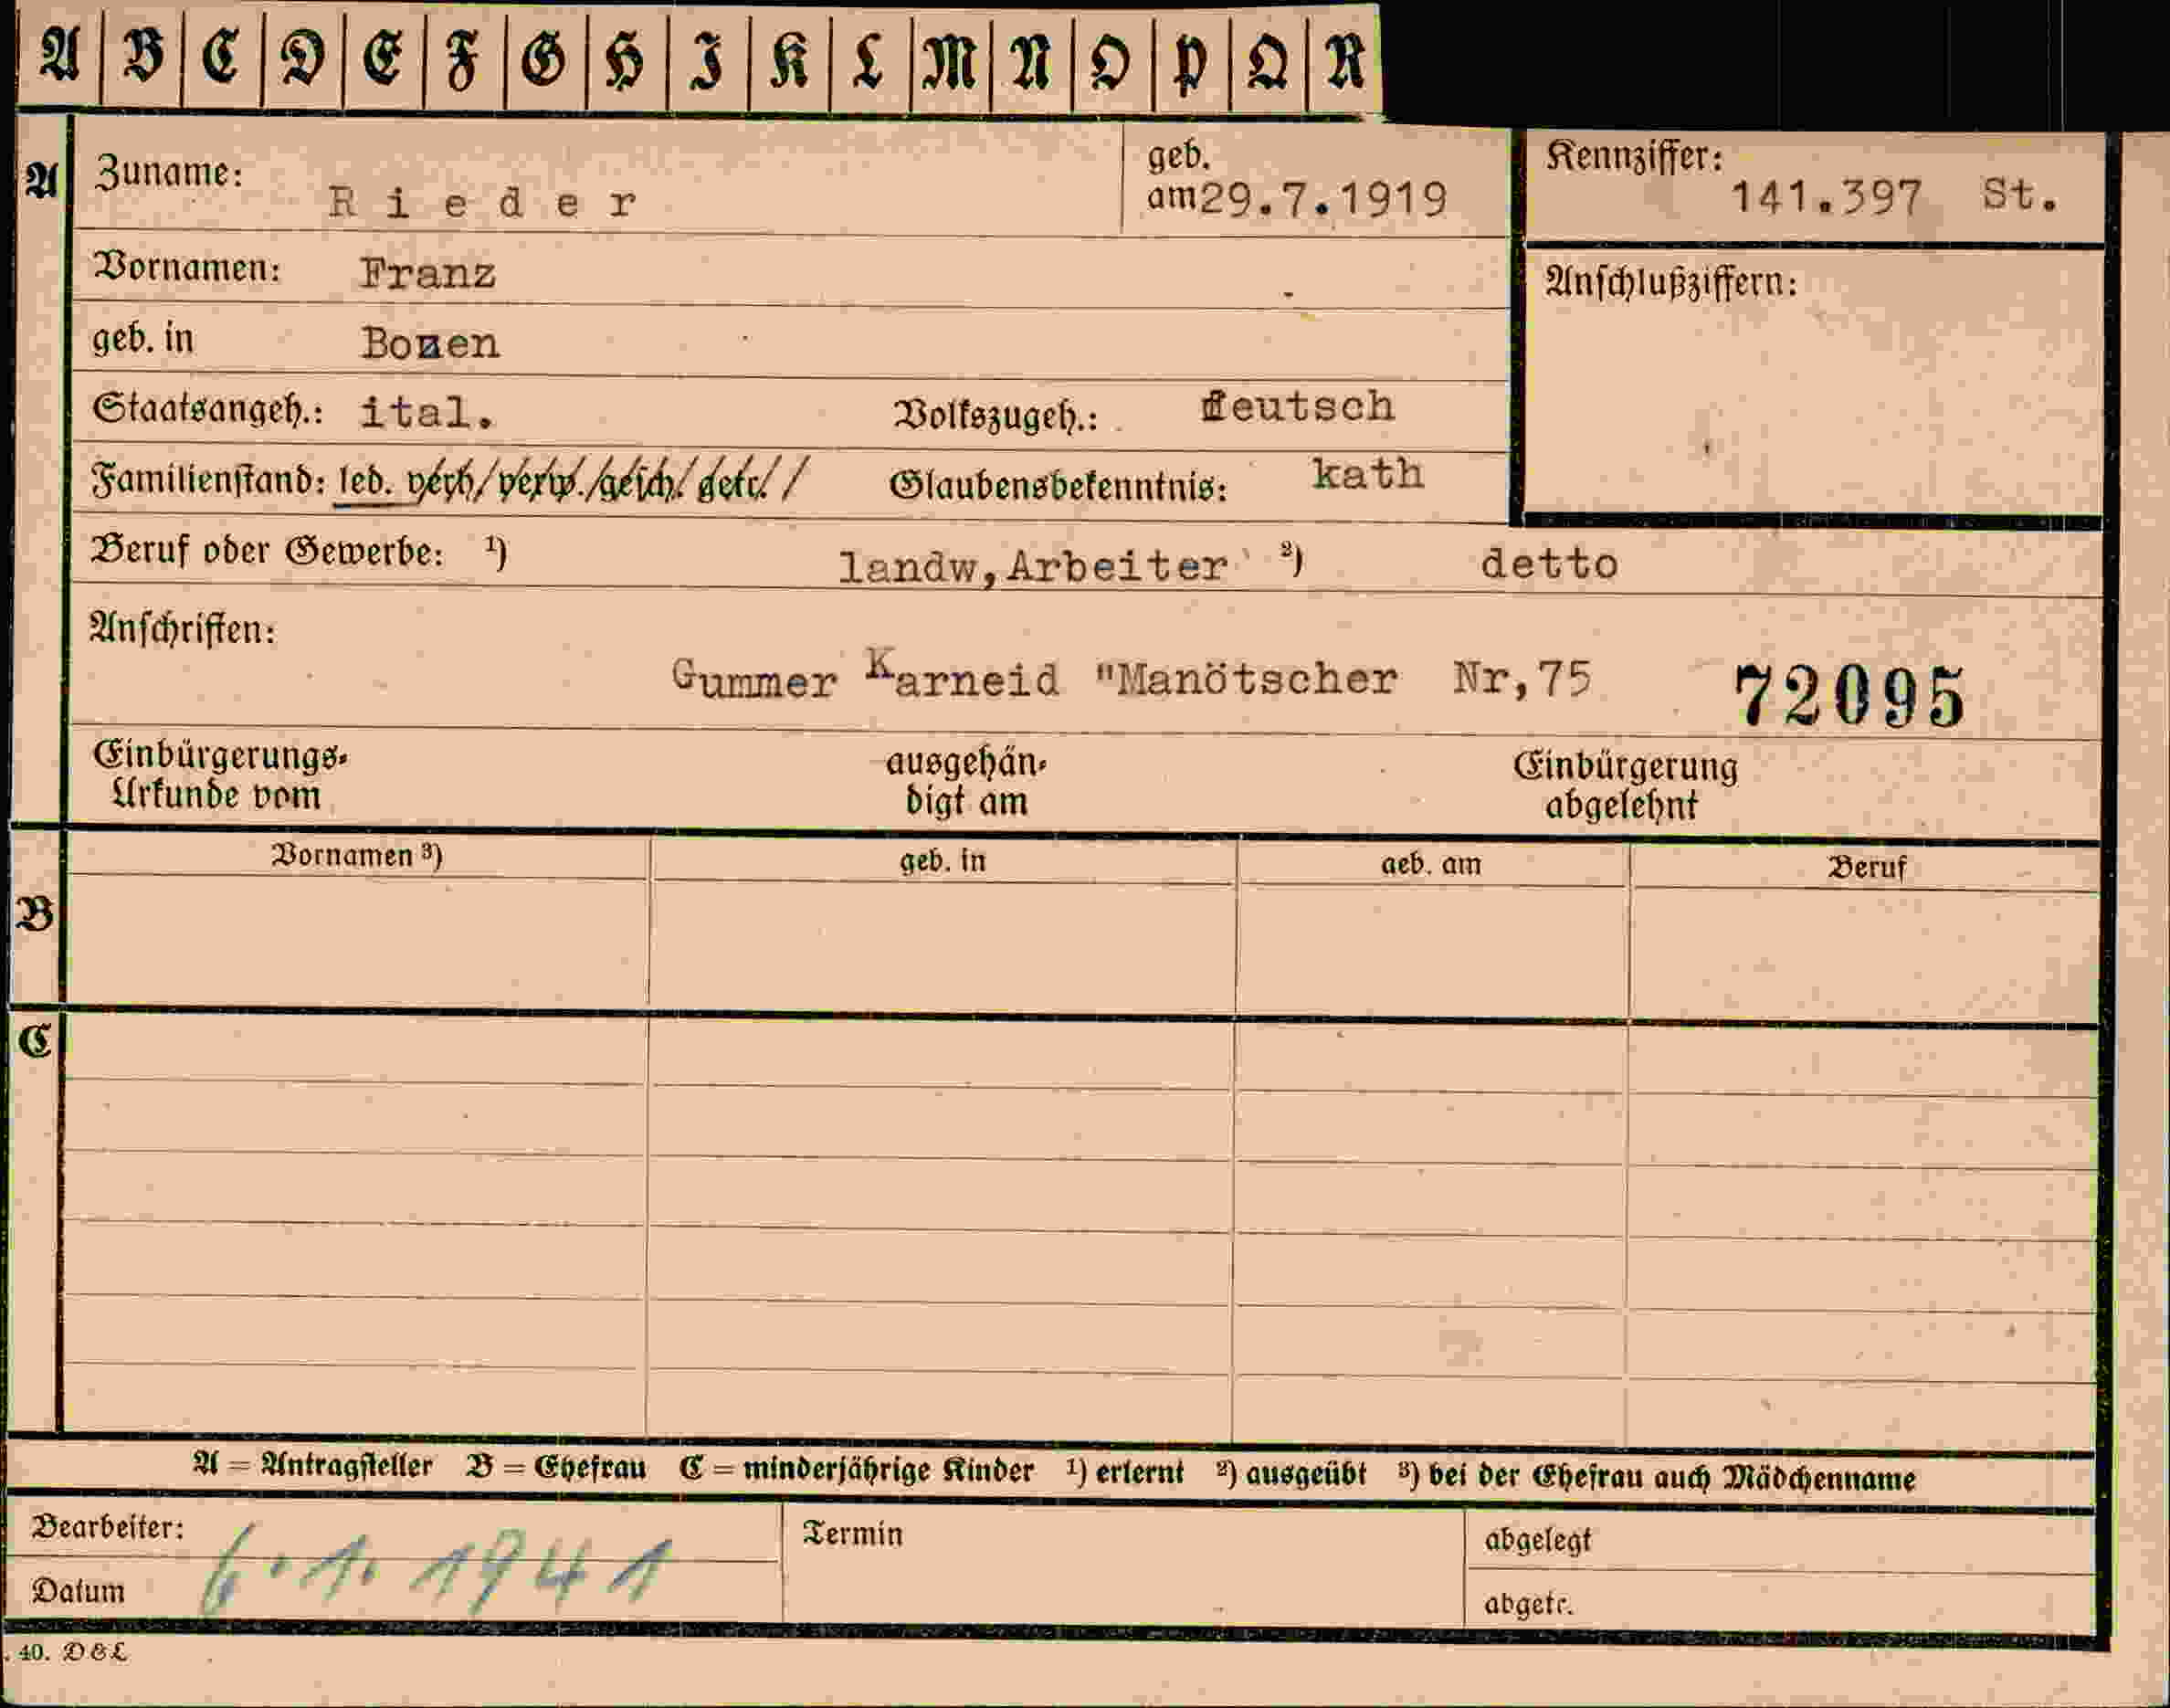 A B C D E F G H I K L M N O P Q R
A Zuname: Rieder geb. am 29.7.1919 Kennziffer: 141.397 St.
Vornamen: Franz Anschlußziffern:
geb. in Bozen
Staatsangeh.: ital. Volkszugeh.: deutsch
Familienstand: led. verh./verw./gesch./getr./ Glaubensbekenntnis: kath
Beruf oder Gewerbe: ¹) landw,Arbeiter ²) detto
Anschriften:
Gummer Karneid "Manötscher Nr,75 72095
Einbürgerungs-Urkunde vom ausgehändigt am Einbürgerung abgelehnt
Vornamen ³) geb. in geb. am Beruf
B
C
A = Antragsteller B = Ehefrau C = minderjährige Kinder ¹) erlernt ²) ausgeübt ³) bei der Ehefrau auch Mädchenname
Bearbeiter: Termin abgelegt
Datum 6.1.1941 abgetr.
. 40. D&L